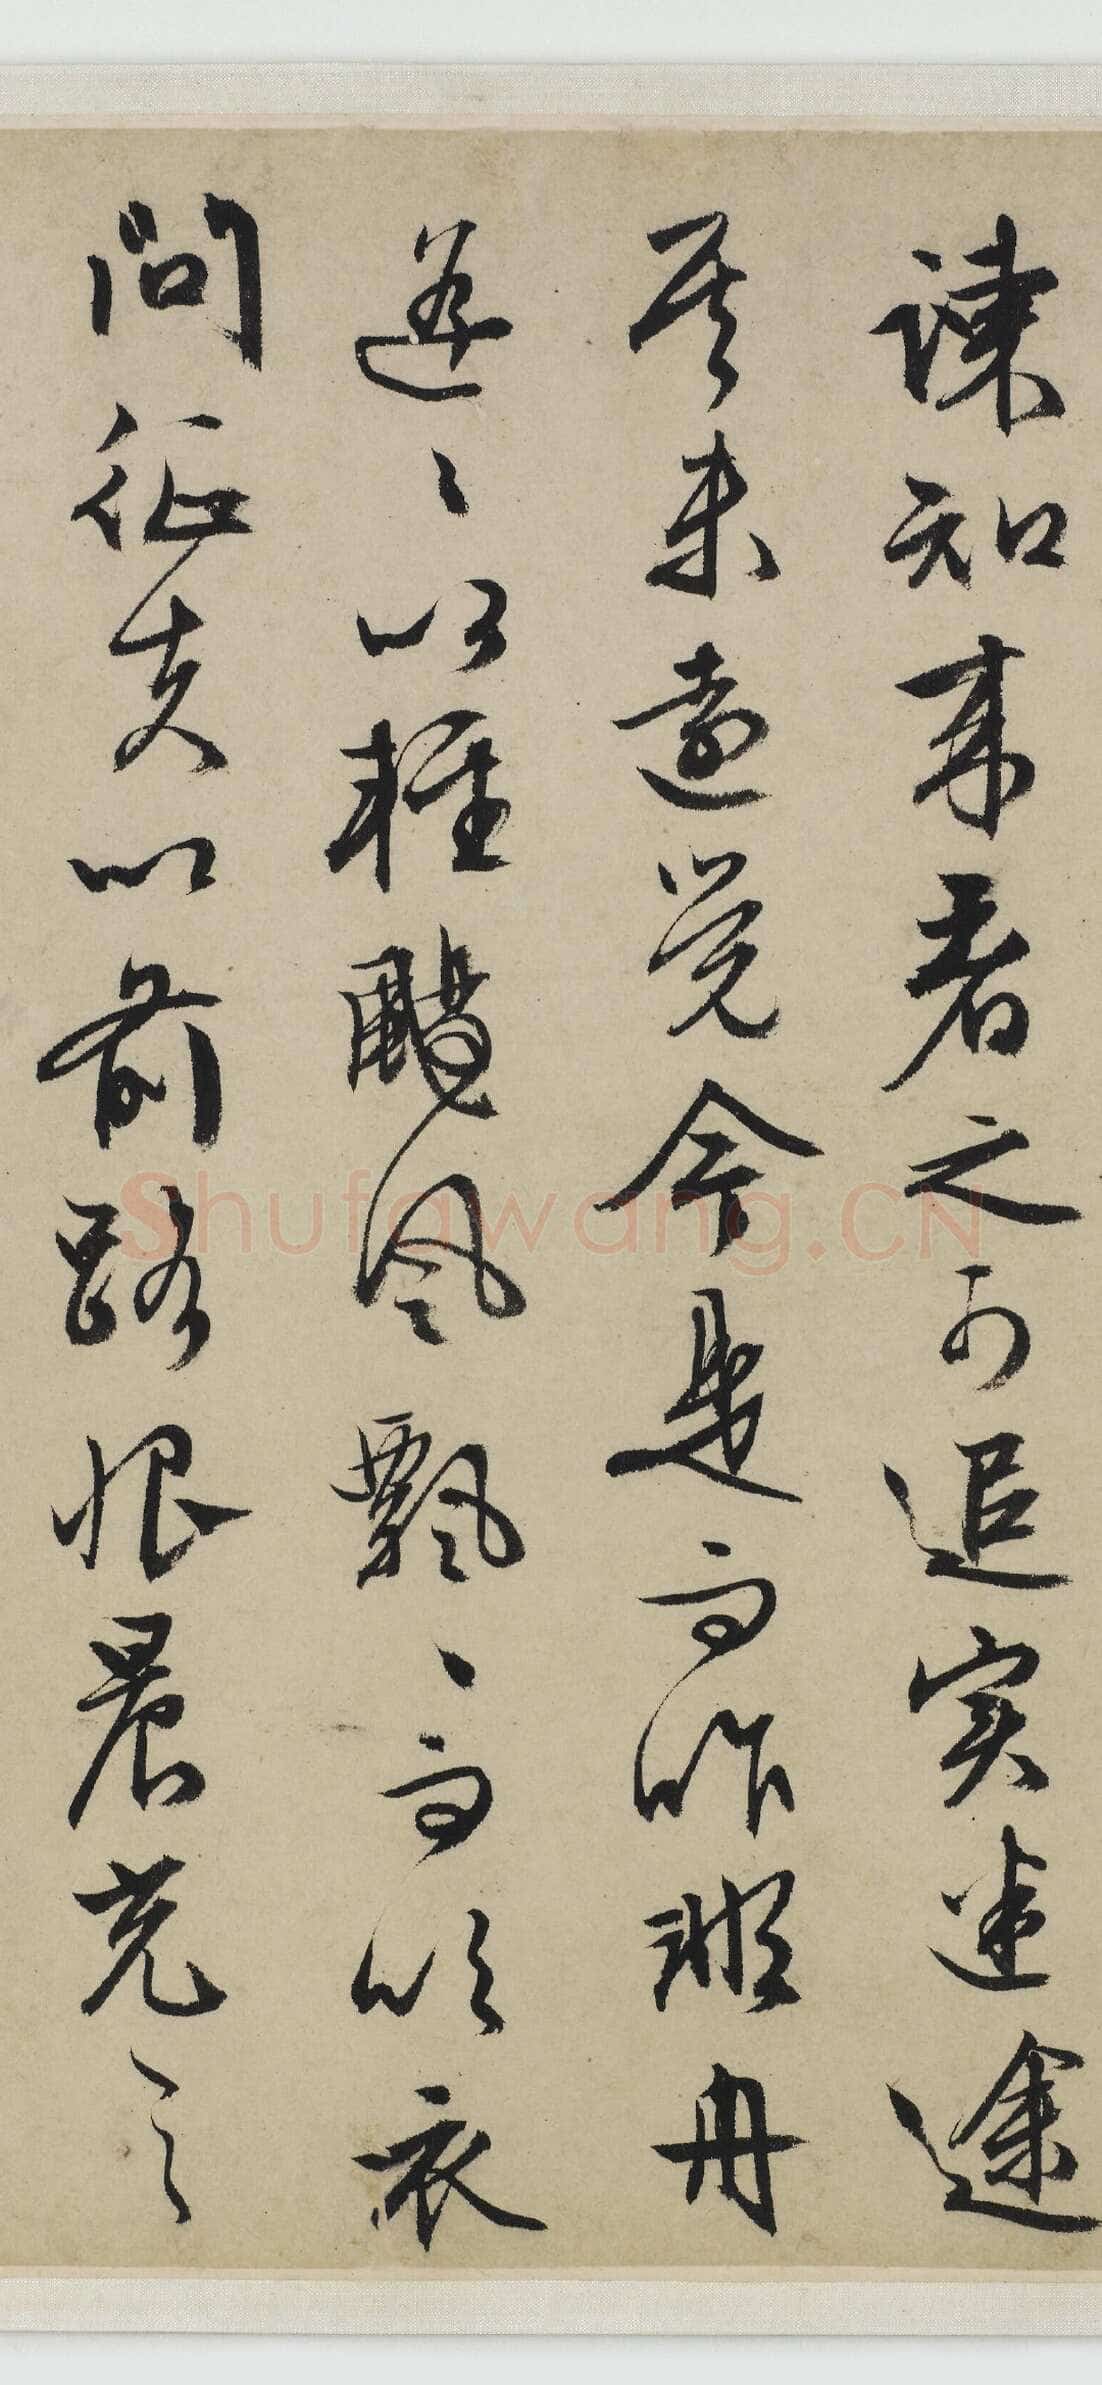 諫知来者之可追实迷途
其未遠覚今是而昨非舟
遥〻以軽颺风飘〻而吹衣
问征夫以前路恨晨光之
Shufawang.CN